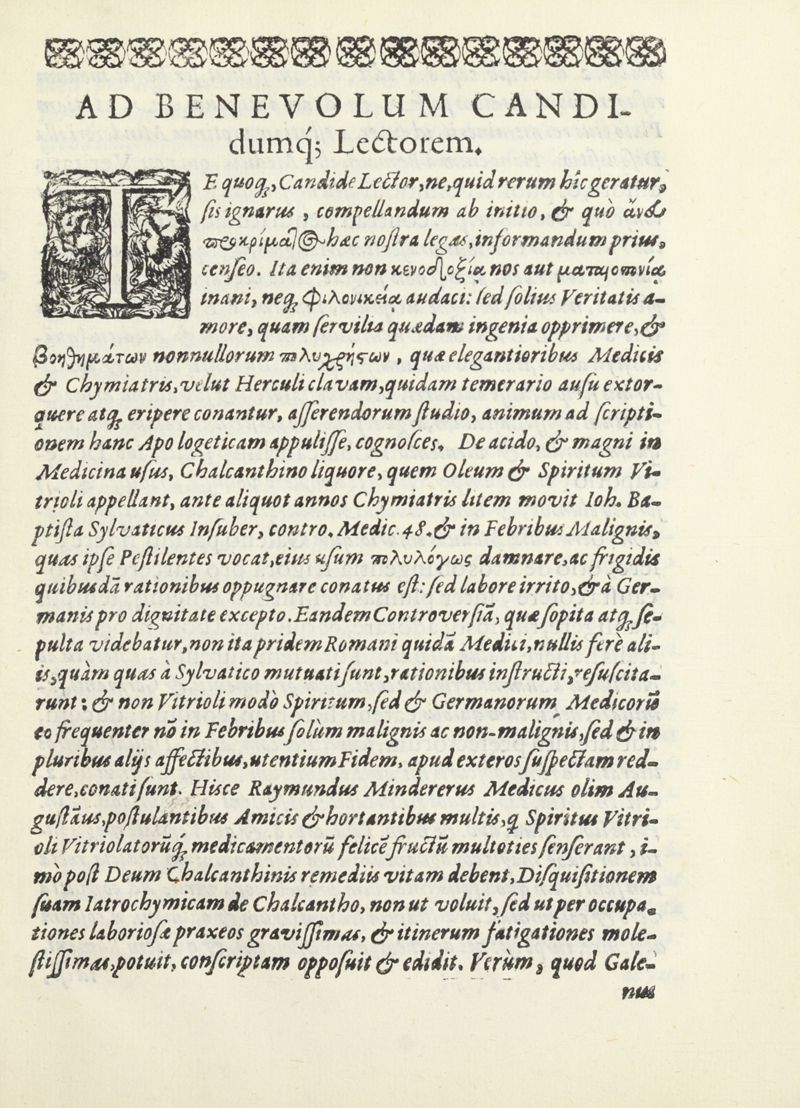 AD BENEVOLUM CANDI-
dumq́; Lectorem.
TE quoq;, Candide Lector, ne, quid rerum hîc geratur,
sis ignarus, compellandum ab initio, & quò
hæc nostra legas, informandum prius,
censeo. Ita enim non κενοδοξίᾳ nos aut ματαιοπονίᾳ
inani, neq; φιλονικείᾳ audaci: sed solius Veritatis a-
more, quam servilia quædam ingenia opprimere, &
βοηθημάτων nonnullorum πολυχρήστων, quæ elegantioribus Medicis
& Chymiatris, velut Herculi clavam, quidam temerario ausu extor-
quere atq; eripere conantur, asserendorum studio, animum ad scripti-
onem hanc Apologeticam appulisse, cognosces. De acido, & magni in
Medicina usus, Chalcanthino liquore, quem Oleum & Spiritum Vi-
trioli appellant, ante aliquot annos Chymiatris litem movit Ioh. Ba-
ptista Sylvaticus Insuber, contro. Medic. 48. & in Febribus Malignis,
quas ipse Pestilentes vocat, eius usum πολυλόγως damnare, ac frigidis
quibusdā rationibus oppugnare conatus est: sed labore irrito, & à Ger-
manis pro dignitate excepto. Eandem Controversiā, quæ sopita atq; se-
pulta videbatur, non ita pridem Romani quidā Medici, nullis ferè ali-
is, quàm quas à Sylvatico mutuati sunt, rationibus instructi, resuscita-
runt: & non Vitrioli modò Spiritum, sed & Germanorum Medicorū
eo frequenter nō in Febribus solùm malignis ac non-malignis, sed & in
pluribus alijs affectibus, utentium Fidem, apud exteros suspectam red-
dere, conati sunt. Hisce Raymundus Mindererus Medicus olim Au-
gustāus, postulantibus Amicis & hortantibus multis, q Spiritus Vitri-
oli Vitriolatorūq́; medicamentorū felicē fructū multoties senserant, i-
mò post Deum Chalcanthinis remediis vitam debent, Disquisitionem
suam Iatrochymicam de Chalcantho, non ut voluit, sed ut per occupa-
tiones laboriosæ praxeos gravissimas, & itinerum fatigationes mole-
stissimas, potuit, conscriptam opposuit & edidit. Verùm, quod Gale-
nus